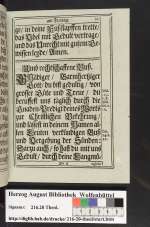 ge/ in deine Fußstapffen trette/
das Ubel mit Gedult vertrage/
und das Unrecht mit gutem Ge-
wissen leyde/ Amen.
Umb rechtschaffene Buß.
Gnädiger/ Barmhertziger
Gott/ du bist geduldig/ von
grosser Güte und Treue/ du
beruffest uns täglich durch
deines Worts
zur Christlichen Bekehrung/
und lässest in deinem Namen al-
len Leuten verkündigen Buß
und Vergebung der Sünden:
Darzu auch/ so hast du mit uns
Gedult/ durch deine Langmü-
Herzog August Bibliothek Wolfenbüttel
Signatur: 216.20 Theol.
http://diglib.hab.de/drucke/216-20-theol/start.htm